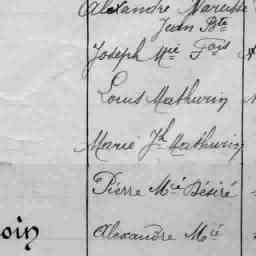 Alexandre Narcisse
Jean Bte
Joseph Mie Fois
Louis Mathurin
Marie Jh Mathurin
Pierre Mie Désiré
oin
Alexandre Mie